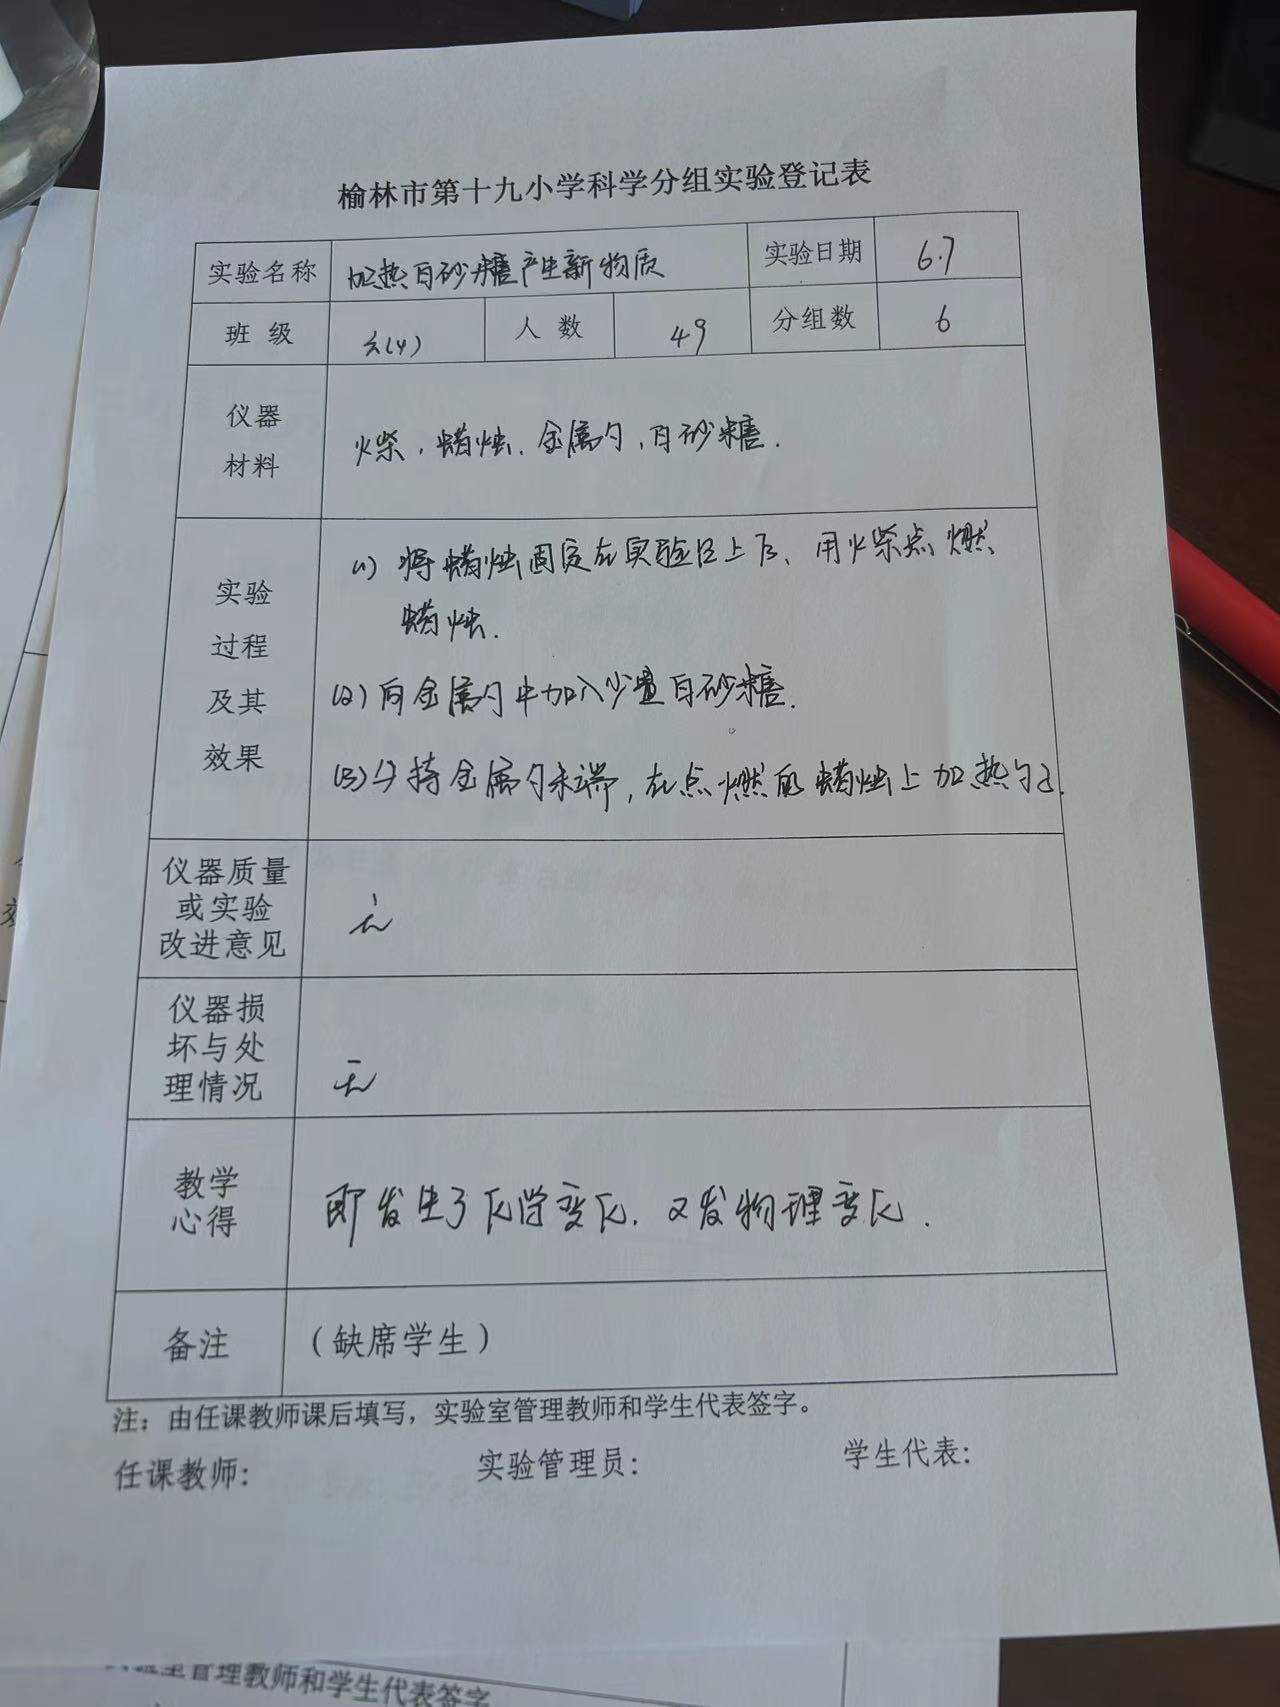 榆林市第十九小学科学分组实验登记表
实验名称 加热白砂糖产生新物质 实验日期 6.7
班级 六(4) 人数 49 分组数 6
仪器
材料
火柴，蜡烛、金属勺，白砂糖.
实验
过程
及其
效果
(1) 将蜡烛固定在实验 上方、用火柴点燃
蜡烛.
(2) 向金属勺中加入少量白砂糖.
(3) 手持金属勺末端，在点燃的蜡烛上加热勺子.
仪器质量
或实验
改进意见
无
仪器损
坏与处
理情况
无
教学
心得
即发生了化学变化，又发物理变化.
备注 （缺席学生）
注：由任课教师课后填写，实验室管理教师和学生代表签字。
任课教师： 实验管理员： 学生代表：
实验室管理教师和学生代表签字